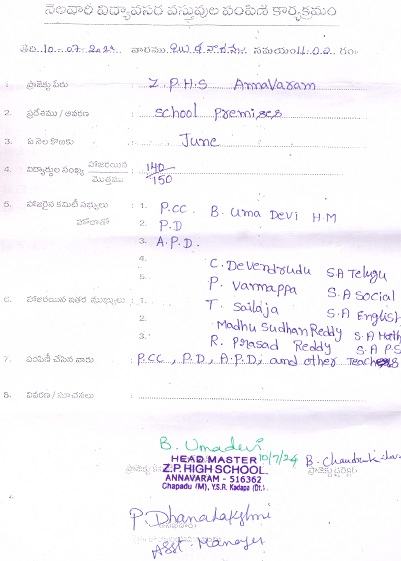 నెలవారి విద్యావసర వస్తువుల పంపిణీ కార్యక్రమం
తేది..10-07-2024 వారము.బుధవారము. సమయం.11.00 గం.
1. ప్రాజెక్టు పేరు : Z.P.H.S Annavaram
2. ప్రదేశము / ఆవరణ : school premises
3. ఏ నెల కొరకు : June
4. విద్యార్థుల సంఖ్య హాజరయిన / మొత్తము : 140/150
5. హాజరైన కమిటీ సభ్యులు : 1. P.CC. B. Uma Devi H M
హోదాతో 2. P.D
3. A.P.D.
4. C. Devendrudu S.A Telugu
5. P. Varmappa S.A Social
6. హాజరయిన ఇతర ముఖ్యులు : 1. T. Sailaja S.A English
2. Madhu Sudhan Reddy S.A Maths
3. R. Prasad Reddy S.A P.S
7. పంపిణీ చేసిన వారు : P.CC, P.D, A.P.D, and other Teachers
8. వివరణ / సూచనలు :
B. Umadevi 10/7/24
HEAD MASTER
Z.P. HIGH SCHOOL
ANNAVARAM - 516362
Chapadu (M), Y.S.R. Kadapa (Dt.).
P. Dhanalakshmi
Asst. Manager